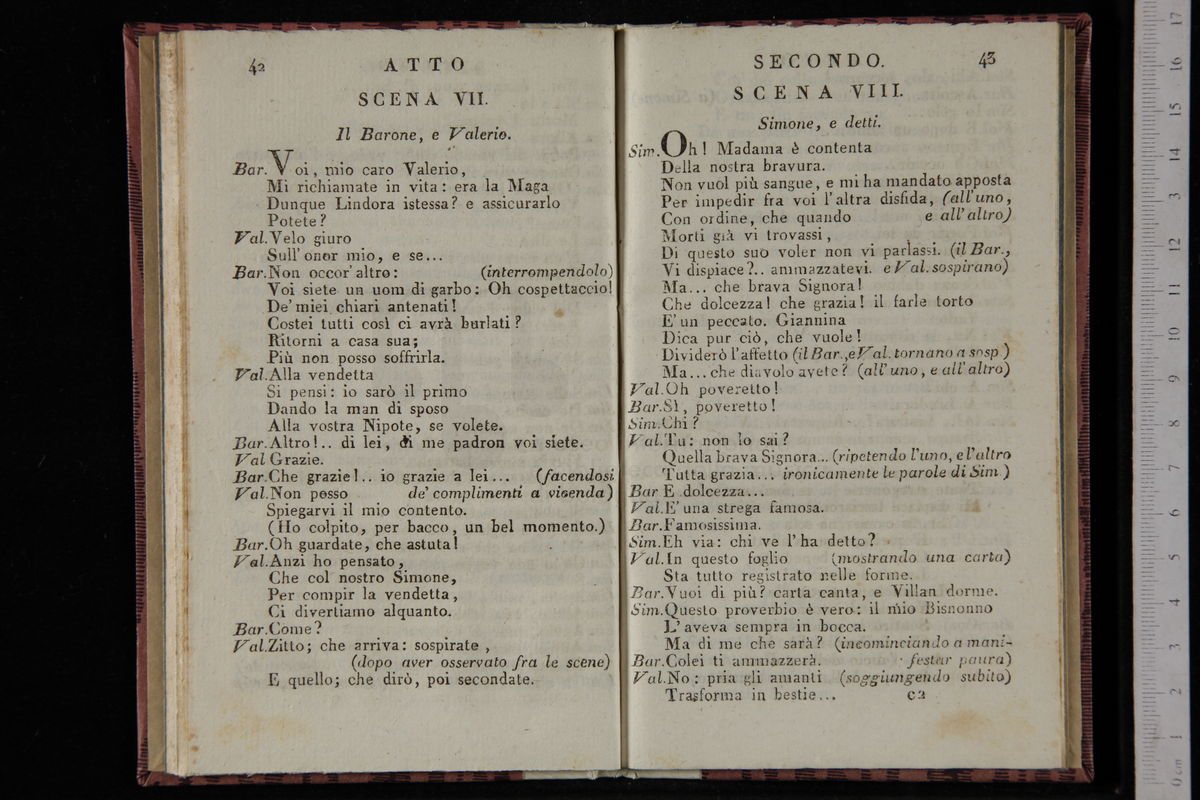 42 ATTO
SCENA VII.
Il Barone, e Valerio.
Bar. Voi, mio caro Valerio,
Mi richiamate in vita: era la Maga
Dunque Lindora istessa? e assicurarlo
Potete?
Val. Velo giuro
Sull' onor mio, e se...
Bar. Non occor' altro: (interrompendolo)
Voi siete un uom di garbo: Oh cospettaccio!
De' miei chiari antenati!
Costei tutti così ci avrà burlati?
Ritorni a casa sua;
Più non posso soffrirla.
Val. Alla vendetta
Si pensi: io sarò il primo
Dando la man di sposo
Alla vostra Nipote, se volete.
Bar. Altro!.. di lei, di me padron voi siete.
Val Grazie.
Bar. Che grazie!.. io grazie a lei... (facendosi
Val. Non posso de' complimenti a vicenda)
Spiegarvi il mio contento.
(Ho colpito, per bacco, un bel momento.)
Bar. Oh guardate, che astuta!
Val. Anzi ho pensato,
Che col nostro Simone,
Per compir la vendetta,
Ci divertiamo alquanto.
Bar. Come?
Val. Zitto; che arriva: sospirate,
(dopo aver osservato fra le scene)
E quello; che dirò, poi secondate.
SECONDO. 43
SCENA VIII.
Simone, e detti.
Sim. Oh! Madama è contenta
Della nostra bravura.
Non vuol più sangue, e mi ha mandato apposta
Per impedir fra voi l'altra disfida, (all'uno,
Con ordine, che quando e all' altro)
Morti già vi trovassi,
Di questo suo voler non vi parlassi. (il Bar.,
Vi dispiace?.. ammazzatevi. e Val. sospirano)
Ma... che brava Signora!
Che dolcezza! che grazia! il farle torto
E' un peccato. Giannina
Dica pur ciò, che vuole!
Dividerò l'affetto (il Bar., e Val. tornano a sosp )
Ma... che diavolo avete? (all' uno, e all' altro)
Val. Oh poveretto!
Bar. Sì, poveretto!
Sim. Chi?
Val. Tu: non lo sai?
Quella brava Signora... (ripetendo l'uno, e l'altro
Tutta grazia... ironicamente le parole di Sim )
Bar E dolcezza...
Val. E' una strega famosa.
Bar. Famosissima.
Sim. Eh via: chi ve l' ha detto?
Val. In questo foglio (mostrando una carta)
Sta tutto registrato nelle forme.
Bar. Vuoi di più? carta canta, e Villan dorme.
Sim. Questo proverbio è vero: il mio Bisnonno
L' aveva sempre in bocca.
Ma di me che sarà? (incominciando a mani-
Bar. Colei ti ammazzerà. festar paura)
Val. No: pria gli amanti (soggiungendo subito)
Trasforma in bestie... c2
0 cm 1 2 3 4 5 6 7 8 9 10 11 12 13 14 15 16 17